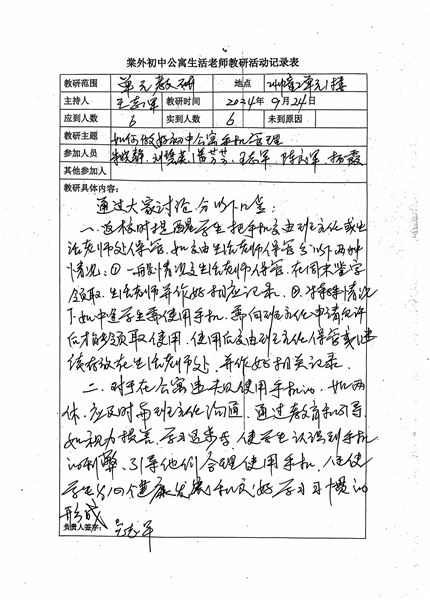 棠外初中公寓生活老师教研活动记录表
教研范围 单元教研 地点 2单元1楼
主持人 王志军 教研时间 2024年9月24日
应到人数 6 实到人数 6 未到原因
教研主题 如何做好初中公寓手机管理
参加人员 王志军
其他参加人
教研具体内容:
通过大家讨论分以下几点:
一、返校时提醒学生把手机交由班主任或生
活老师处保管。如交由生活老师保管分以下两种
情况:①一般情况交生活老师保管,在周末鉴字
领取,生活老师并作好相应记录。②特殊情况
下如中途学生需使用手机,需向班主任申请允许
后才能领取使用,使用后交由班主任保管或继
续存放在生活老师处,并作好相关记录。
二、对于在公寓违规使用手机的,如两
休,应及时与班主任沟通,通过教育和引导,
如视力损害、学习退步等,使学生认识到手机
的利弊、引导他们合理使用手机,促使
学生身心健康发展和良好学习习惯的
形成
负责人签字: 王志军